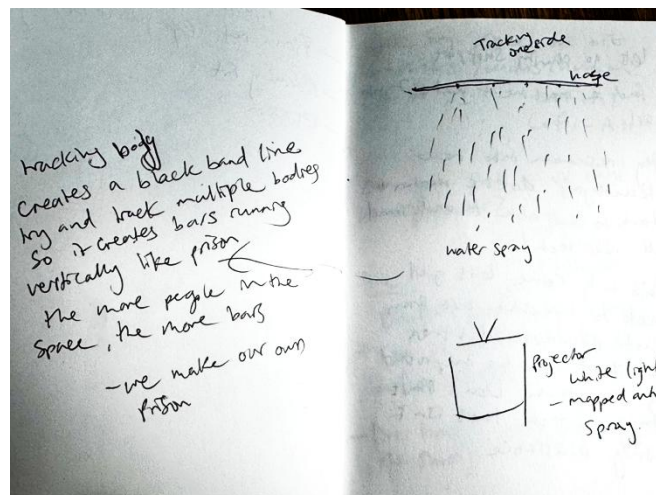 tracking body
creates a black band line
try and track multiple bodies
so it creates bars running
vertically like prison
the more people in the
space, the more bars
- we make our own
prison
Tracking
one side
hose
water spray
projector
white light
- mapped onto
spray.